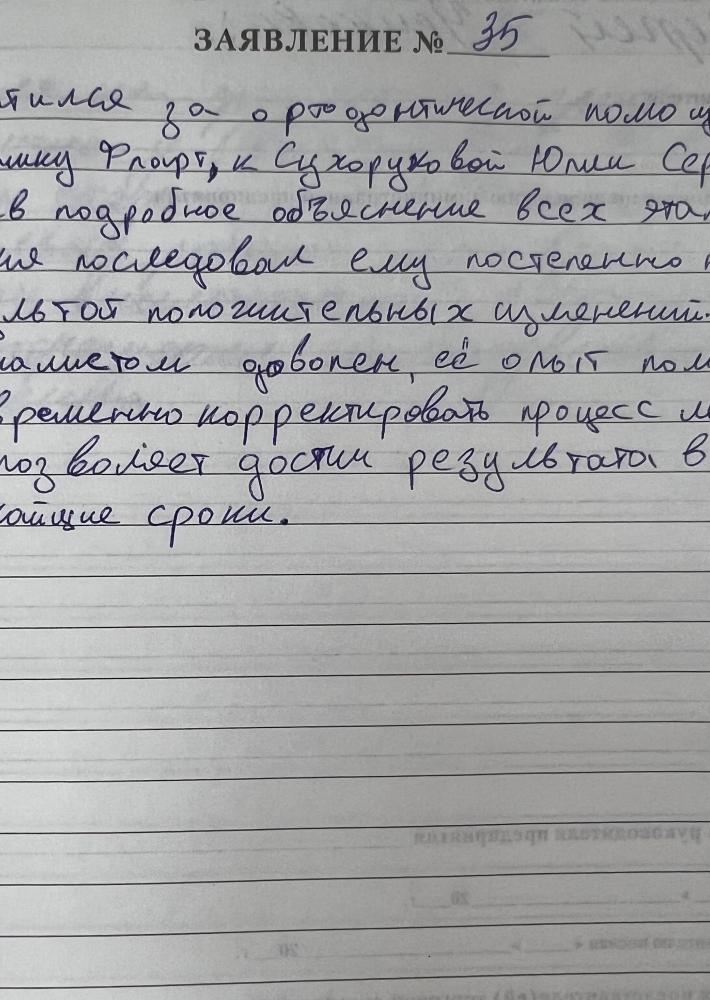 ЗАЯВЛЕНИЕ № 35
тился за ортодонтической помощ
нику Флюрт, к Сухоруковой Юлии Сер
в подробное объяснение всех этап
ия последовал ему постепенно
льтой положительных изменений.
иалистом доволен, её опыт пом
временно корректировать процесс
позволяет достич результата в
айщие сроки.
руководителя предприятия
20
20 г.